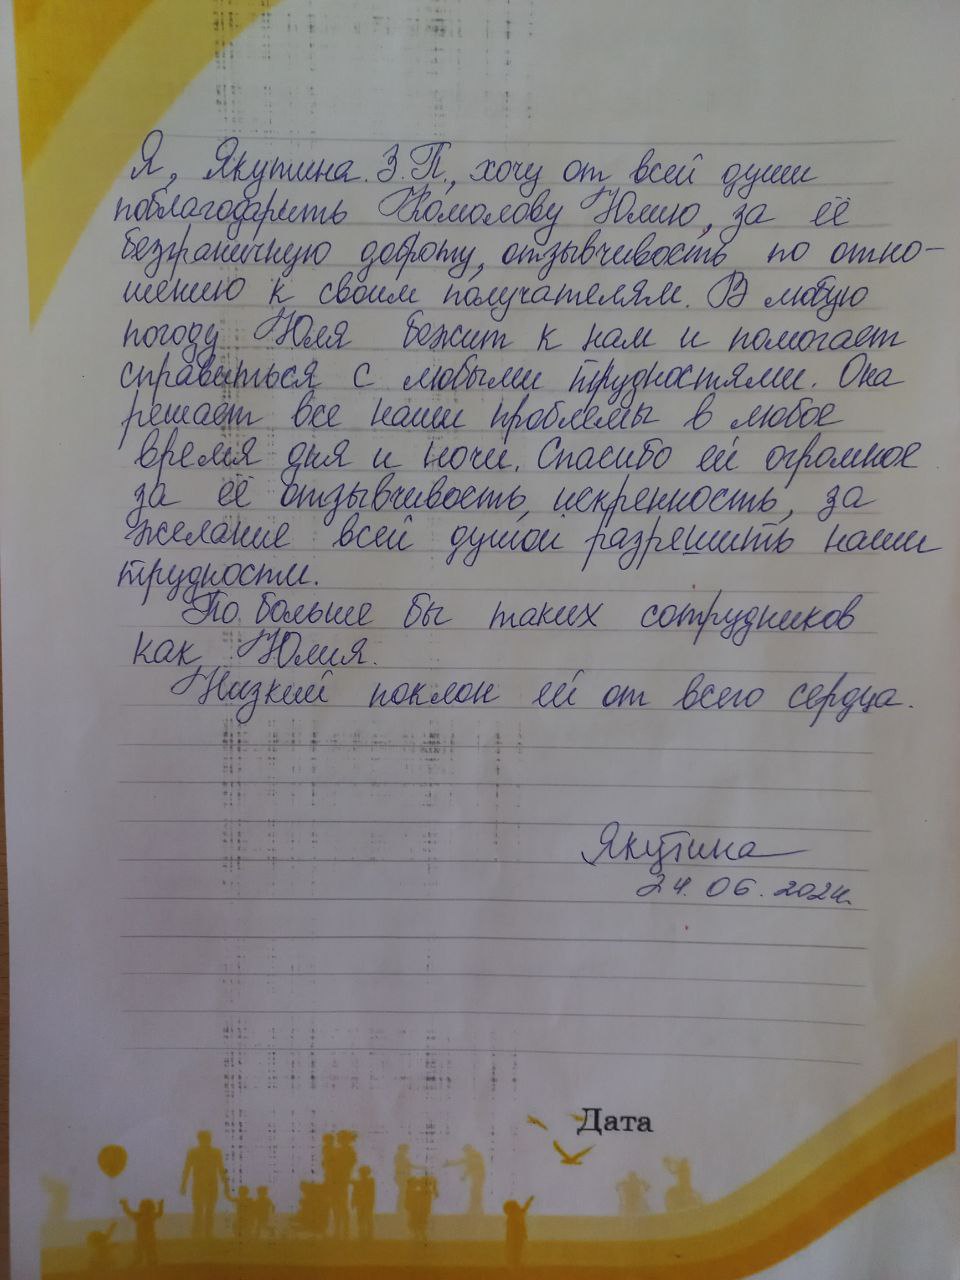 Я, Якупина З.П., хочу от всей души
поблагодарить Комолову Юлию, за её
безграничную доброту, отзывчивость по отно-
шению к своим получателям. В любую
погоду Юля бежит к нам и помогает
справиться с любыми трудностями. Она
решает все наши проблемы в любое
время дня и ночи. Спасибо ей огромное
за её отзывчивость, искренность, за
желание всей душой разрешить наши
трудности.
По больше бы таких сотрудников
как Юлия.
Низкий поклон ей от всего сердца.
Якупина
24.06.2024.
Дата